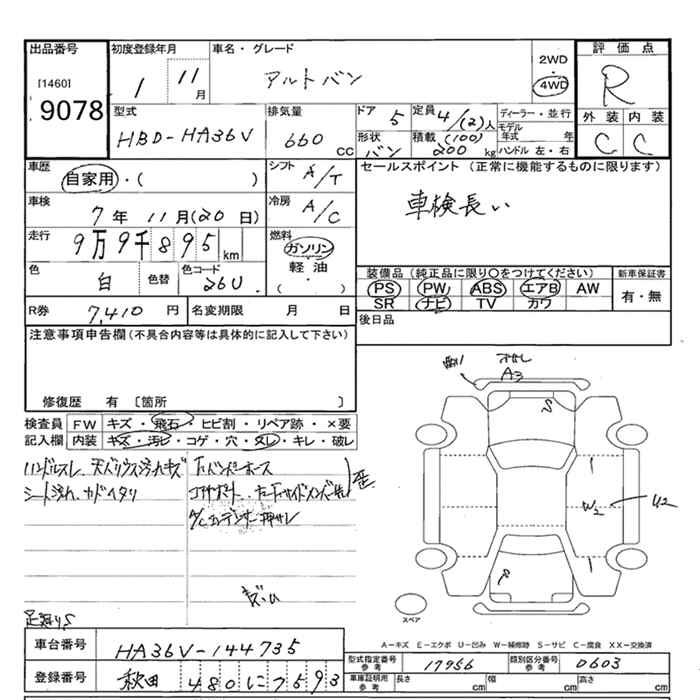 出品番号 初度登録年月 車名・グレード 評価点
[1460]
9078
1 11月 アルトバン
2WD
4WD
R
型式 排気量 ドア 定員 ディーラー・並行 外装 内装
HBD-HA36V 660 CC 5 4/(2)人
モデル年式 年
形状 積載 (100)
バン 200 kg ハンドル 左・右
C C
車歴 シフト セールスポイント(正常に機能するものに限ります)
自家用・( ) A/T
車検長い
車検 冷房
7年11月(20日) A/C
走行 燃料
9万9千895km ガソリン
軽油
( . )
色 色替 色コード
白 26U
装備品(純正品に限り○をつけてください) 新車保証書
PS PW ABS エアB AW 有・無
SR ナビ TV カワ
R券 7,410円 名変期限 月 日 後日品
注意事項申告欄(不具合内容等は具体的に記入して下さい)
修復歴 有 〔箇所 〕
A3
検査員 FW キズ・飛石・ヒビ割・リペア跡・×要
記入欄 内装 キズ・汚レ・コゲ・穴・スレ・キレ・破レ
ハンドルスレ
シート汚れ
W2 U2
スペア
A-キズ E-エクボ U-凹み W-補修跡 S-サビ C-腐食 XX-交換済
車台番号 HA36V-144735
型式指定番号 参考 17956 類別区分番号 参考 0603
登録番号 秋田 480 に 7593
車庫証明用 参考 長さ cm 幅 cm 高さ cm